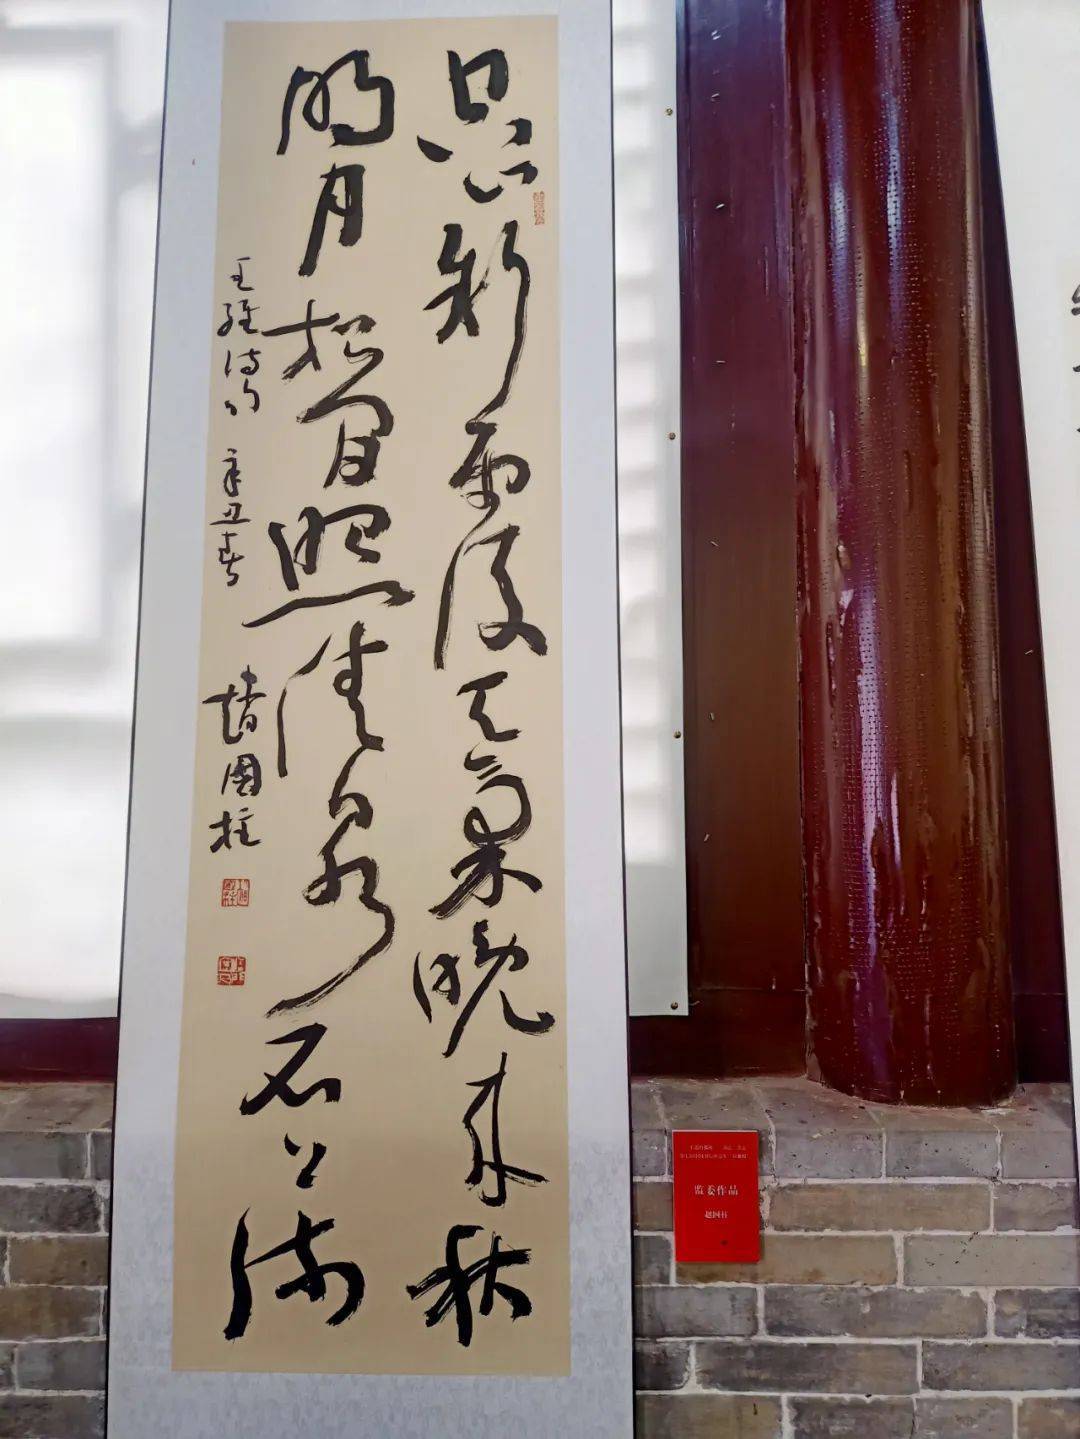 空山新雨後天氣晚来秋
明月松间照清泉石上流
王維诗句 辛丑春 趙國柱
监委作品
赵国柱